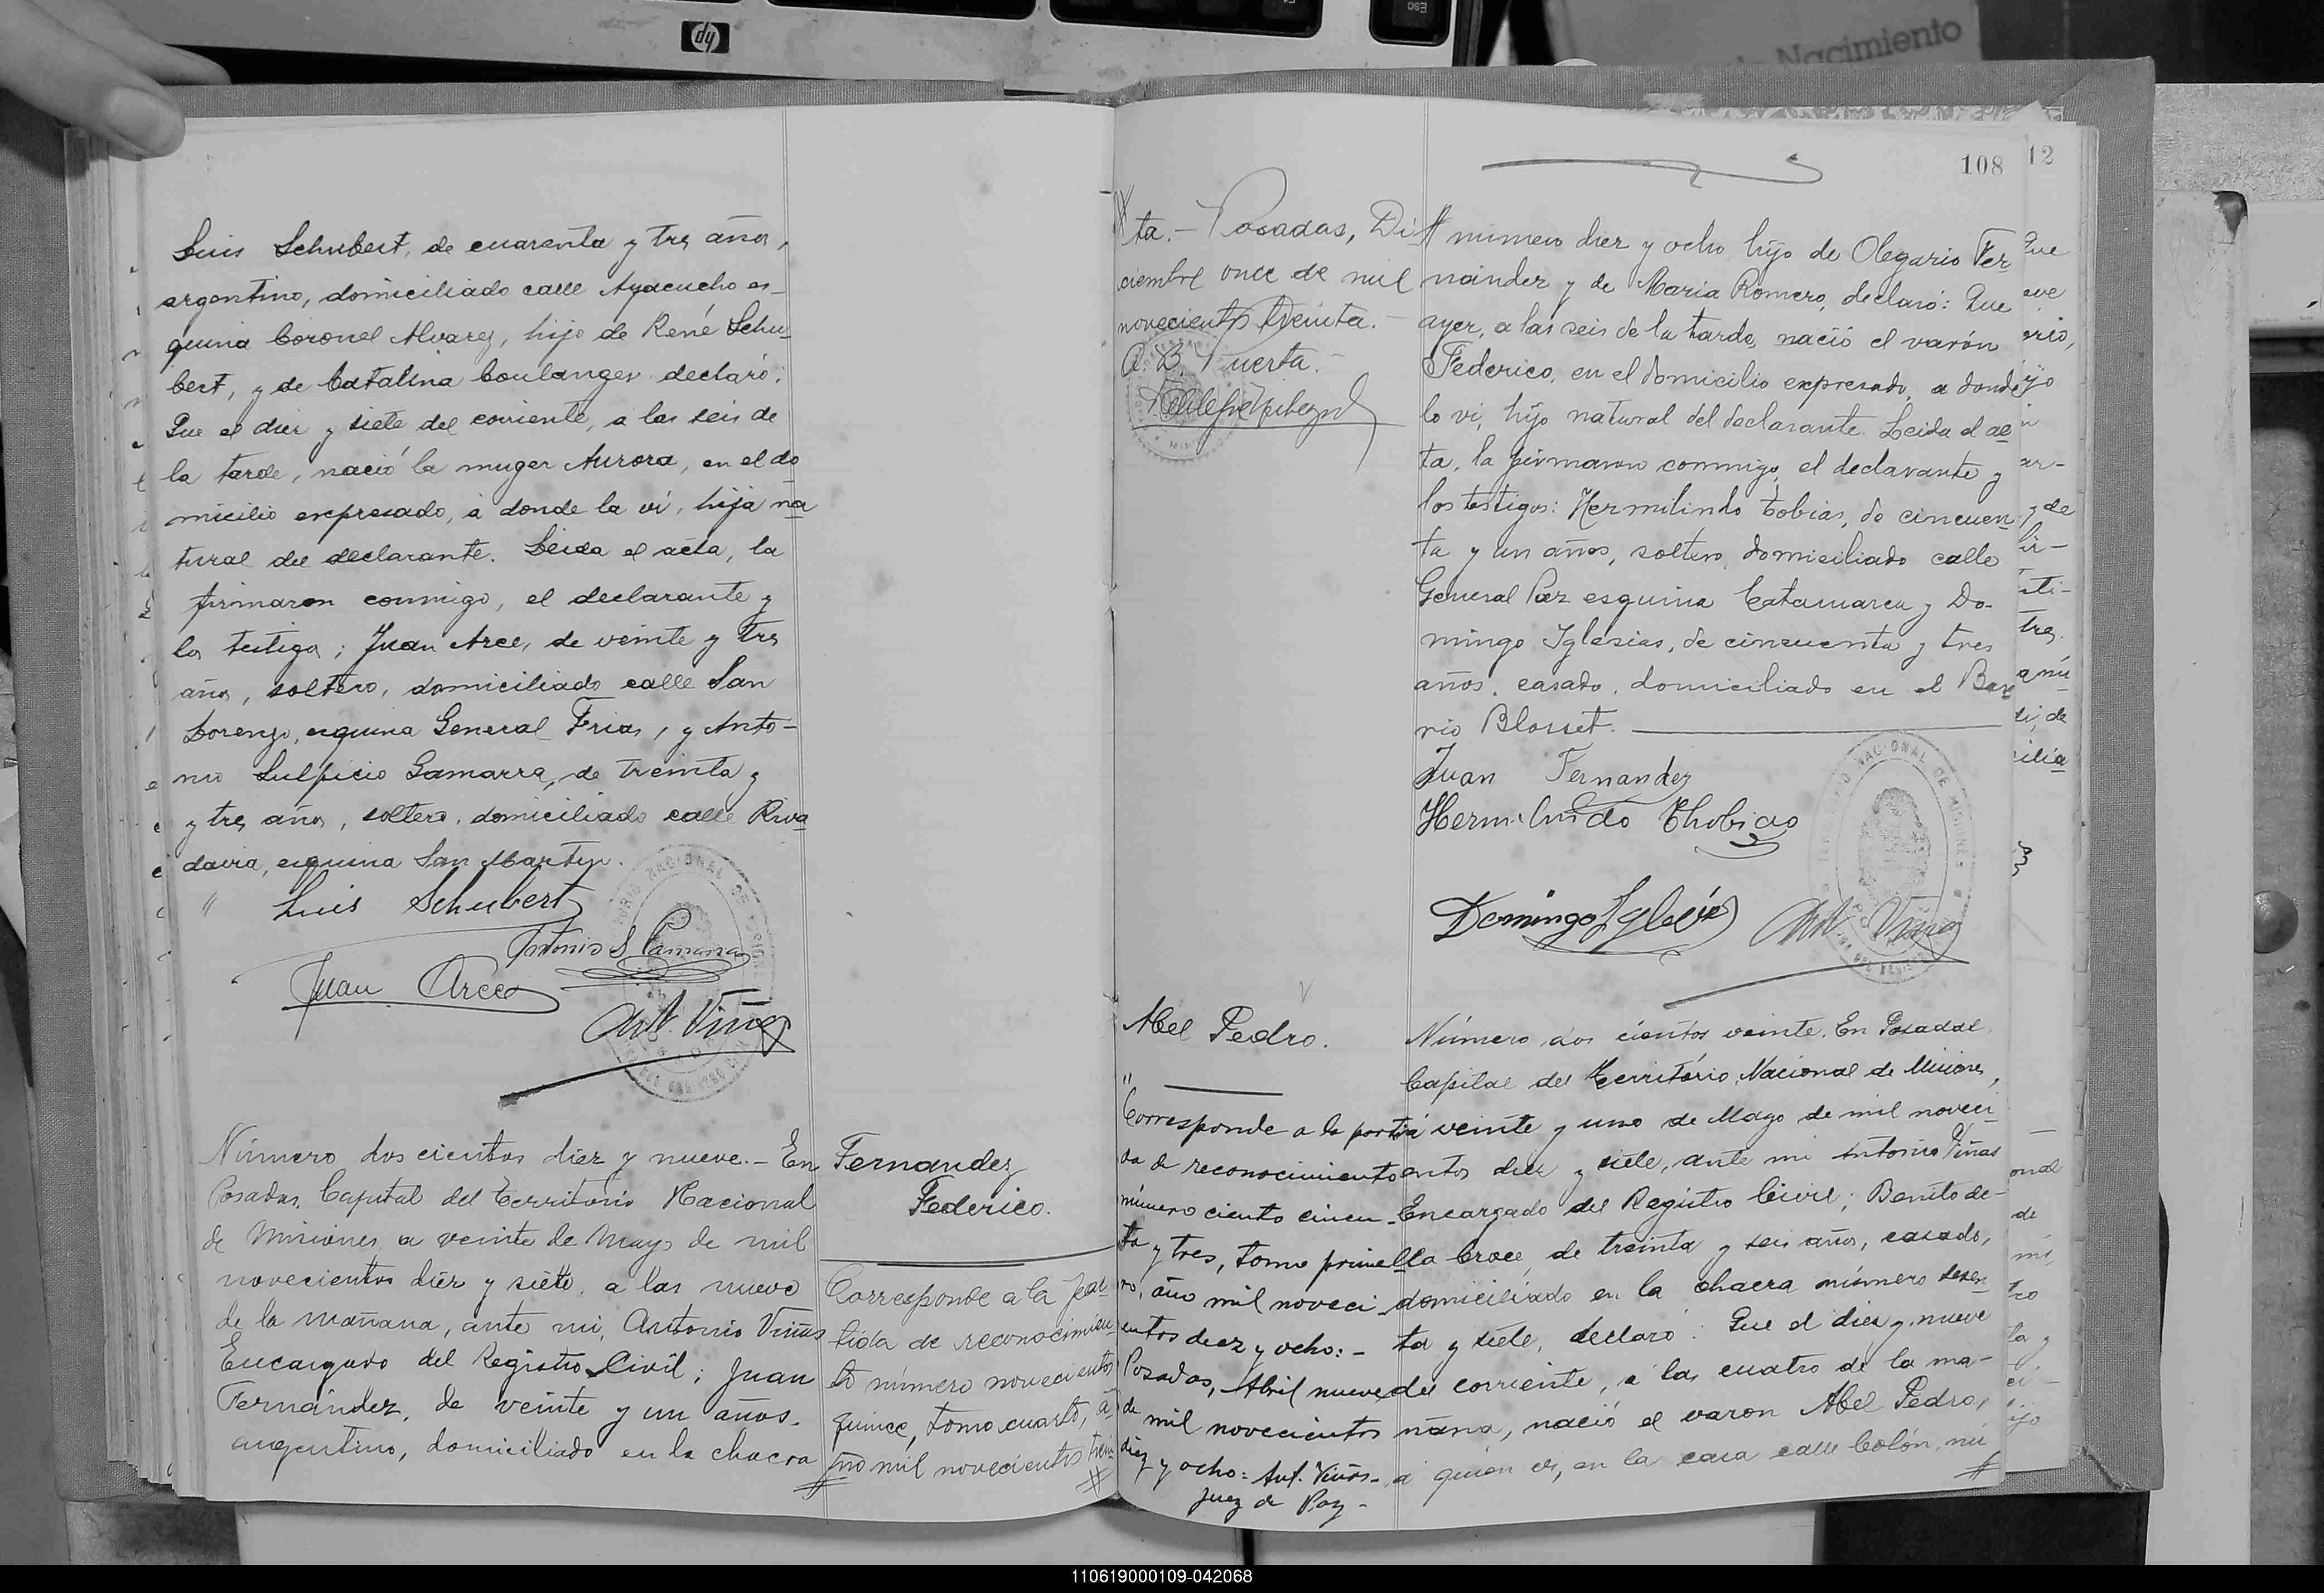 Nacimiento
hp
ESC
Luis Schubert, de cuarenta y tres años,
argentino, domiciliado calle Ayacucho es-
quina Coronel Alvarez, hijo de René Schu-
bert, y de Catalina Coulanger declaró:
Que el diez y siete del corriente, a las seis de
la tarde, nació la muger Aurora, en el do
micilio expresado, á donde la ví, hija na
tural del declarante. Leida el acta, la
firmaron conmigo, el declarante y
los testigos; Juan Arce, de veinte y tres
años, soltero, domiciliado calle San
Lorenzo, esquina General Frias, y Anto-
nio Sulpicio Gamarra, de treinta y
y tres años, soltero, domiciliado calle Riva
davia, esquina San Martin.
Luis Schubert
Antonio S. Gamarra
Juan Arce
Ant. Viñas
Número dos cientos diez y nueve.- En
Posadas, Capital del Territorio Nacional
de Misiones a veinte de Mayo de mil
novecientos diez y siete, a las nueve
de la mañana, ante mi, Antonio Viñas
Encargado del Registro Civil; Juan
Fernández, de veinte y un años.
argentino, domiciliado en la chacra
Fernandez
Federico.
Corresponde a la par
tida de reconocimien
to número novecientos
quince, tomo cuarto, a
ño mil novecientos trein
ta.- Posadas, Di
ciembre once de mil
novecientos treinta.-
A. B. Puerta.-
108
12
número diez y ocho hijo de Olegario Fer
nández y de Maria Romero, declaró: Que
ayer, a las seis de la tarde, nació el varón
Federico, en el domicilio expresado, a donde
lo vi, hijo natural del declarante. Leida el ac
ta, la firmaron conmigo, el declarante y
los testigos: Hermilindo Tobias, de cincuen
ta y un años, soltero, domiciliado calle
General Paz esquina Catamarca y Do-
mingo Iglesias, de cincuenta y tres
años, casado, domiciliado en el Bar
rio Blosset.
Juan Fernandez
Hermilindo Thobias
Domingo Iglesias
Ant. Viñas
Abel Pedro.
Corresponde a la parti
da de reconocimiento
número ciento cincuen
ta y tres, tomo prime
ro, año mil noveci
entos diez y ocho:-
Posadas, Abril nueve
de mil novecientos
diez y ocho: Ant. Viñas-
Juez de Paz-
Número dos cientos veinte. En Posadas,
Capital del Territorio Nacional de Misiones,
á veinte y uno de Mayo de mil noveci-
entos diez y siete, ante mi Antonio Viñas
Encargado del Registro Civil; Benito de-
lla Croce, de treinta y seis años, casado,
domiciliado en la chacra número sesen
ta y siete, declaró: Que el diez y nueve
del corriente, á las cuatro de la ma-
ñana, nació el varon Abel Pedro,
á quien ví, en la casa calle Colón, nú
110619000109-042068